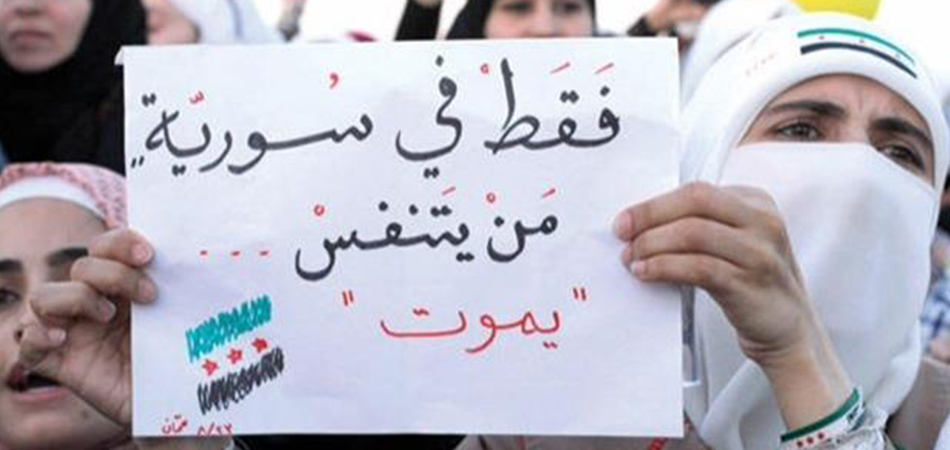 فَقَطْ في سُوريّة,,
مَنْ يَتَنفسْ ...
"يموت"
عمّان ٨/٢٣